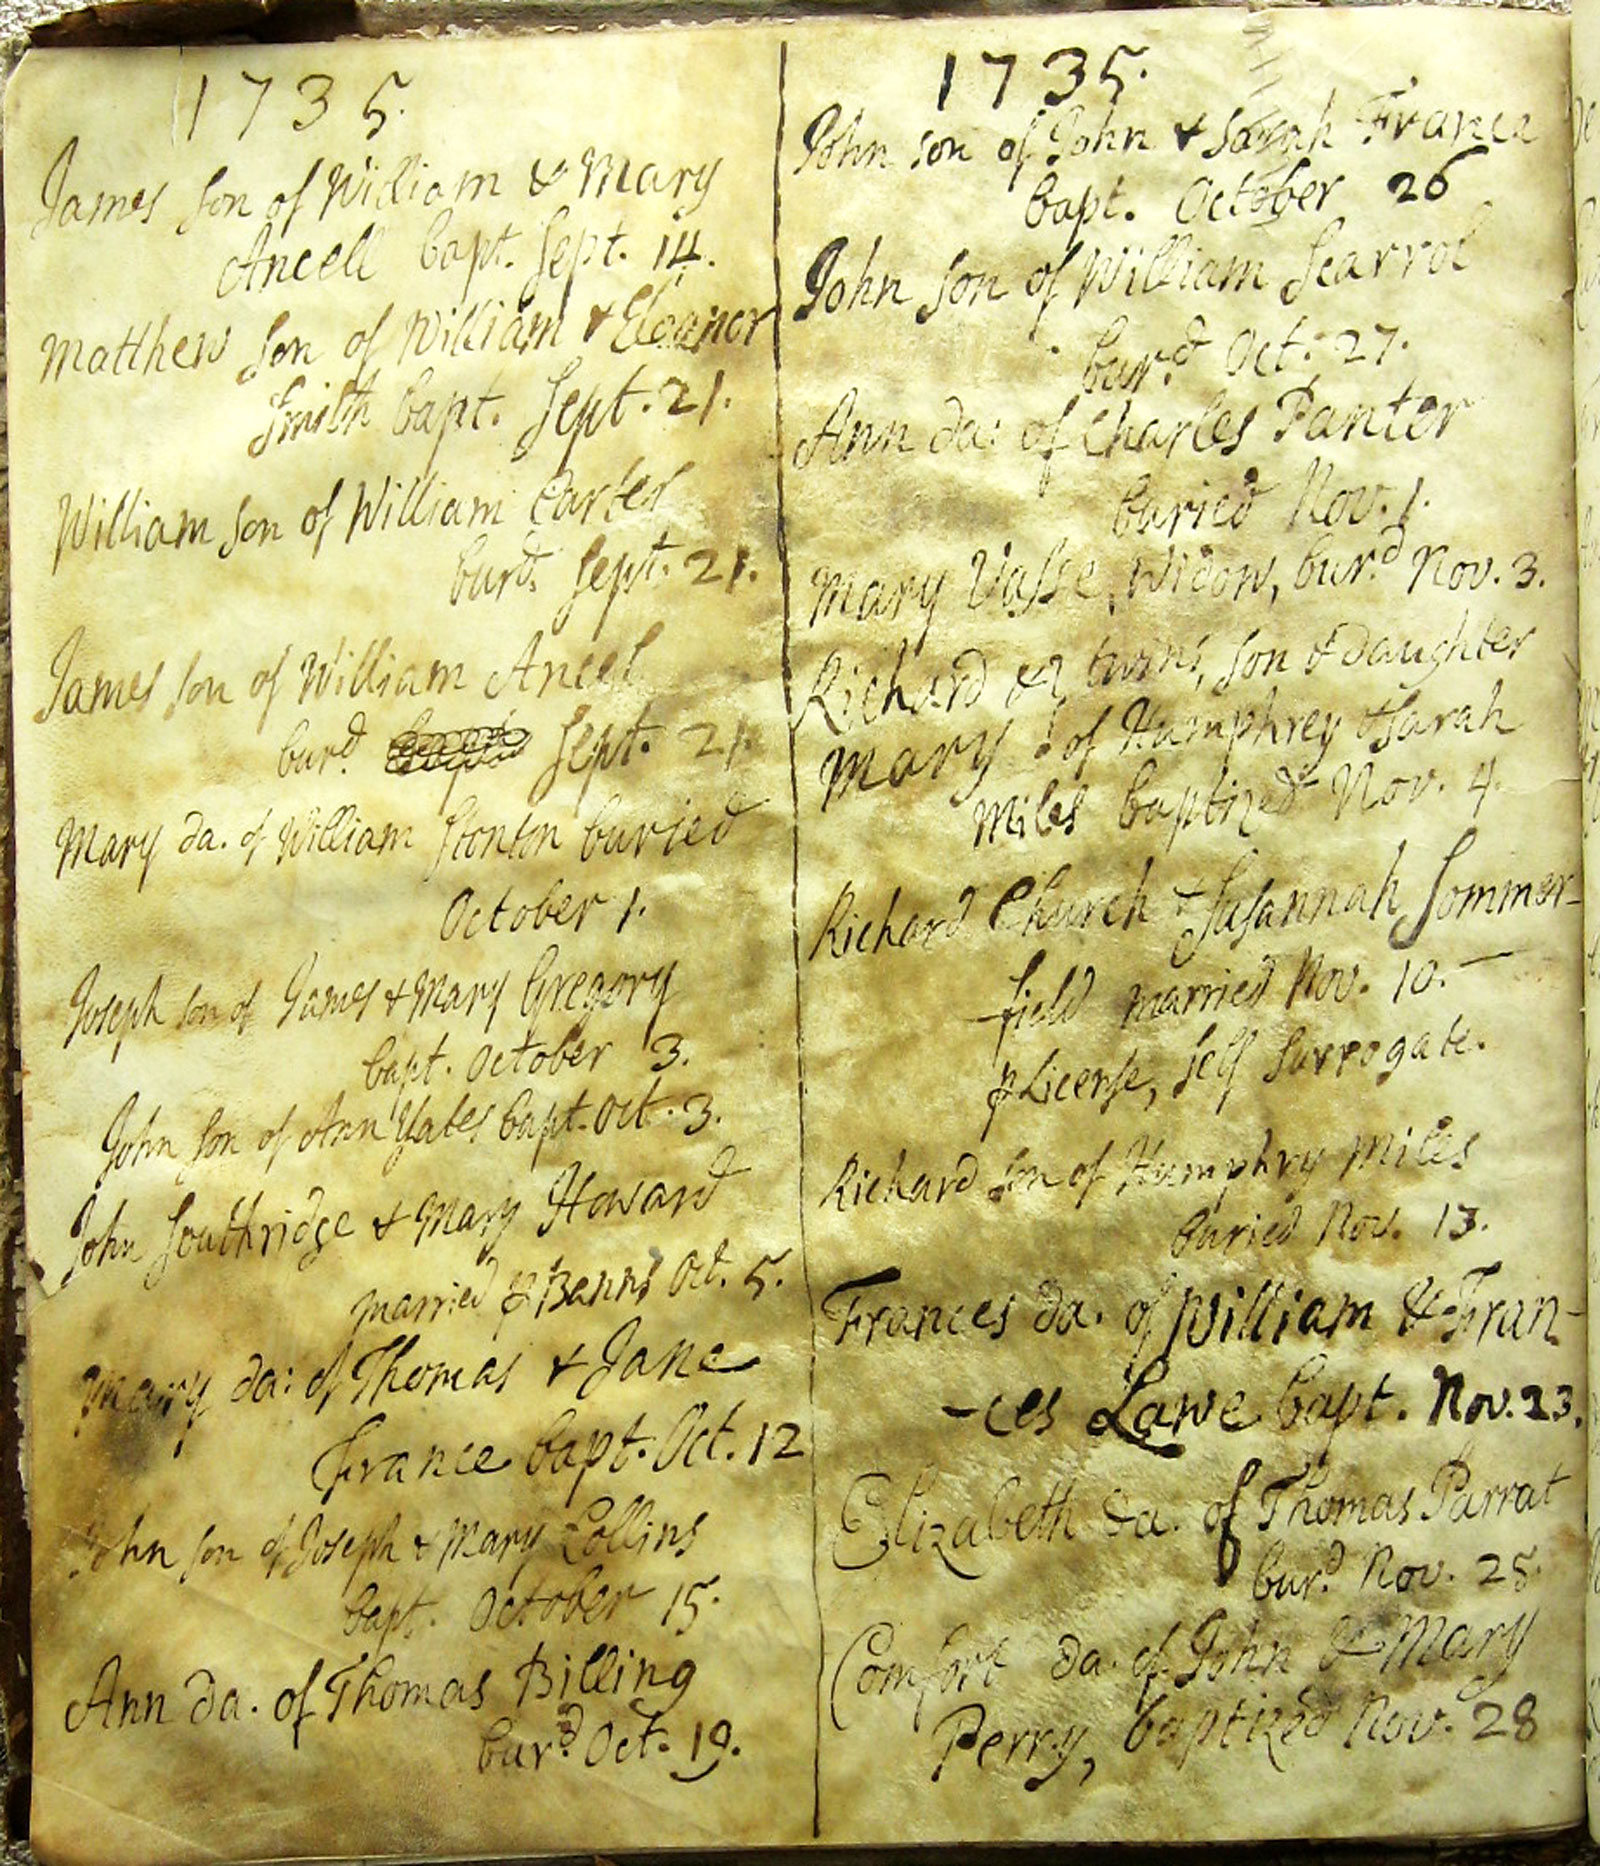 1735.
James son of William & Mary
Ancell bapt. Sept. 14.
Matthew son of William & Eleanor
Smith bapt. Sept. 21.
William son of William Carter
burd. Sept. 21.
James son of William Ancel
burd. Sept. 21.
Mary da. of William Stonton buried
October 1.
Joseph son of James & Mary Gregory
bapt. October 3.
John son of Ann Yates bapt. Oct. 3.
John Southridge & Mary Howard
married p Banns Oct. 5.
Mary da: of Thomas & Jane
France bapt. Oct. 12
John son of Joseph & Mary Collins
bapt. October 15.
Ann da. of Thomas Billing
burd. Oct. 19.
1735.
John son of John & Sarah France
bapt. October 26
John son of William Scarrol
burd. Oct: 27.
Ann da: of Charles Panter
buried Nov. 1.
Mary Vasse, Widow, burd. Nov. 3.
Richard & twins, son & daughter
Mary of Humphrey & Sarah
Miles baptized Nov. 4.
Richard Church & Susannah Sommer-
field married Nov. 10.
p License, self Surrogate.
Richard son of Humphry Miles
buried Nov. 13.
Frances da. of William & Fran-
-ces Lawe bapt. Nov. 23.
Elizabeth da. of Thomas Parrat
burd. Nov. 25.
Comfort da. of John & Mary
Perry, baptized Nov. 28